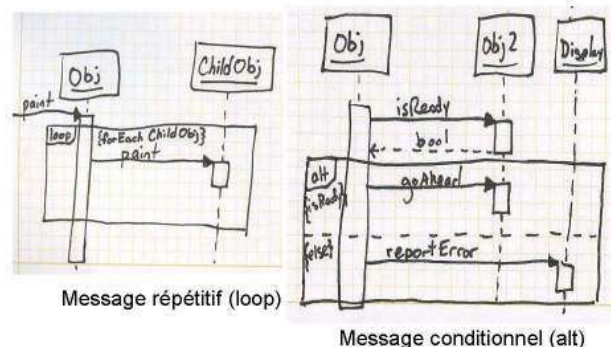 Obj
ChildObj
paint
loop
{forEach ChildObj}
paint
Message répétitif (loop)
Obj
Obj2
Display
isReady
bool
alt
goAhead
{isReady}
{else}
reportError
Message conditionnel (alt)